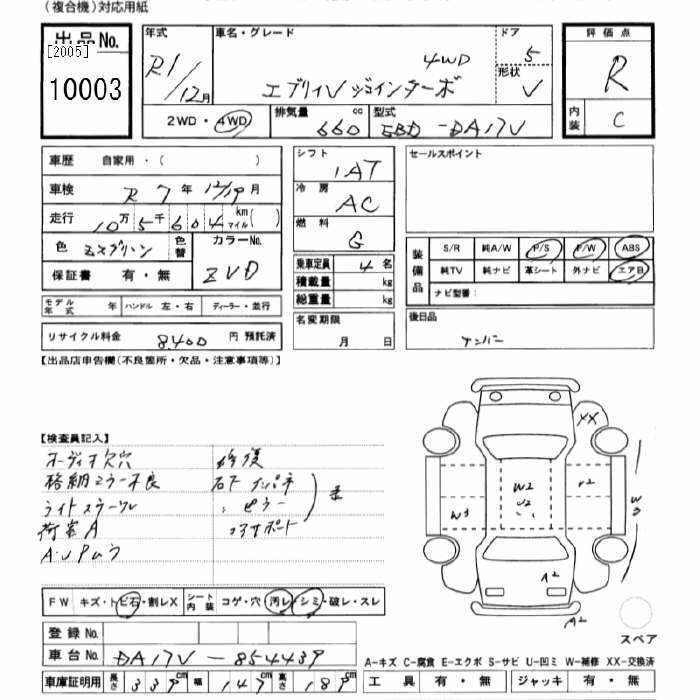 (複合機)対応用紙
出品No.
[2005]
10003
年式
R1/12月
車名・グレード
エブリイV ジョインターボ
4WD
ドア
5
形状
V
2WD・4WD
排気量
660 cc
型式
EBD-DA17V
評価点
R
内装
C
車歴 自家用・( )
車検 R7年12/19月
走行 10万5千604 km マイル( )
色
モスグリーン
色替
カラーNo.
ZVD
保証書 有・無
モデル年式 年 ハンドル 左・右 ディーラー・並行
リサイクル料金 8,400 円 預託済
シフト
1AT
冷房
AC
燃料
G
乗車定員 4名
積載量 kg
総重量 kg
名変期限
月 日
セールスポイント
装備品
S/R 純A/W P/S P/W ABS
純TV 純ナビ 革シート 外ナビ エアB
ナビ型番:
後日品
ナンバー
【出品店申告欄(不良箇所・欠品・注意事項等)】
【検査員記入】
オーディオ欠 穴
格納ミラー不良
ライトスリキズ
荷室A
修復
右F
ピラー
コアサポート
FW キズ・トビ石・割レX
シート内装 コゲ・穴 汚レ・シミ・破レ・スレ
登録No.
車台No. DA17V-854439
車庫証明用 長さ 339cm 幅 147cm 高さ 189cm
XX
W2
U2
W3
W3
A2
A2
スペア
A-キズ C-腐食 E-エクボ S-サビ U-凹ミ W-補修 XX-交換済
工具 有・無 ジャッキ 有・無